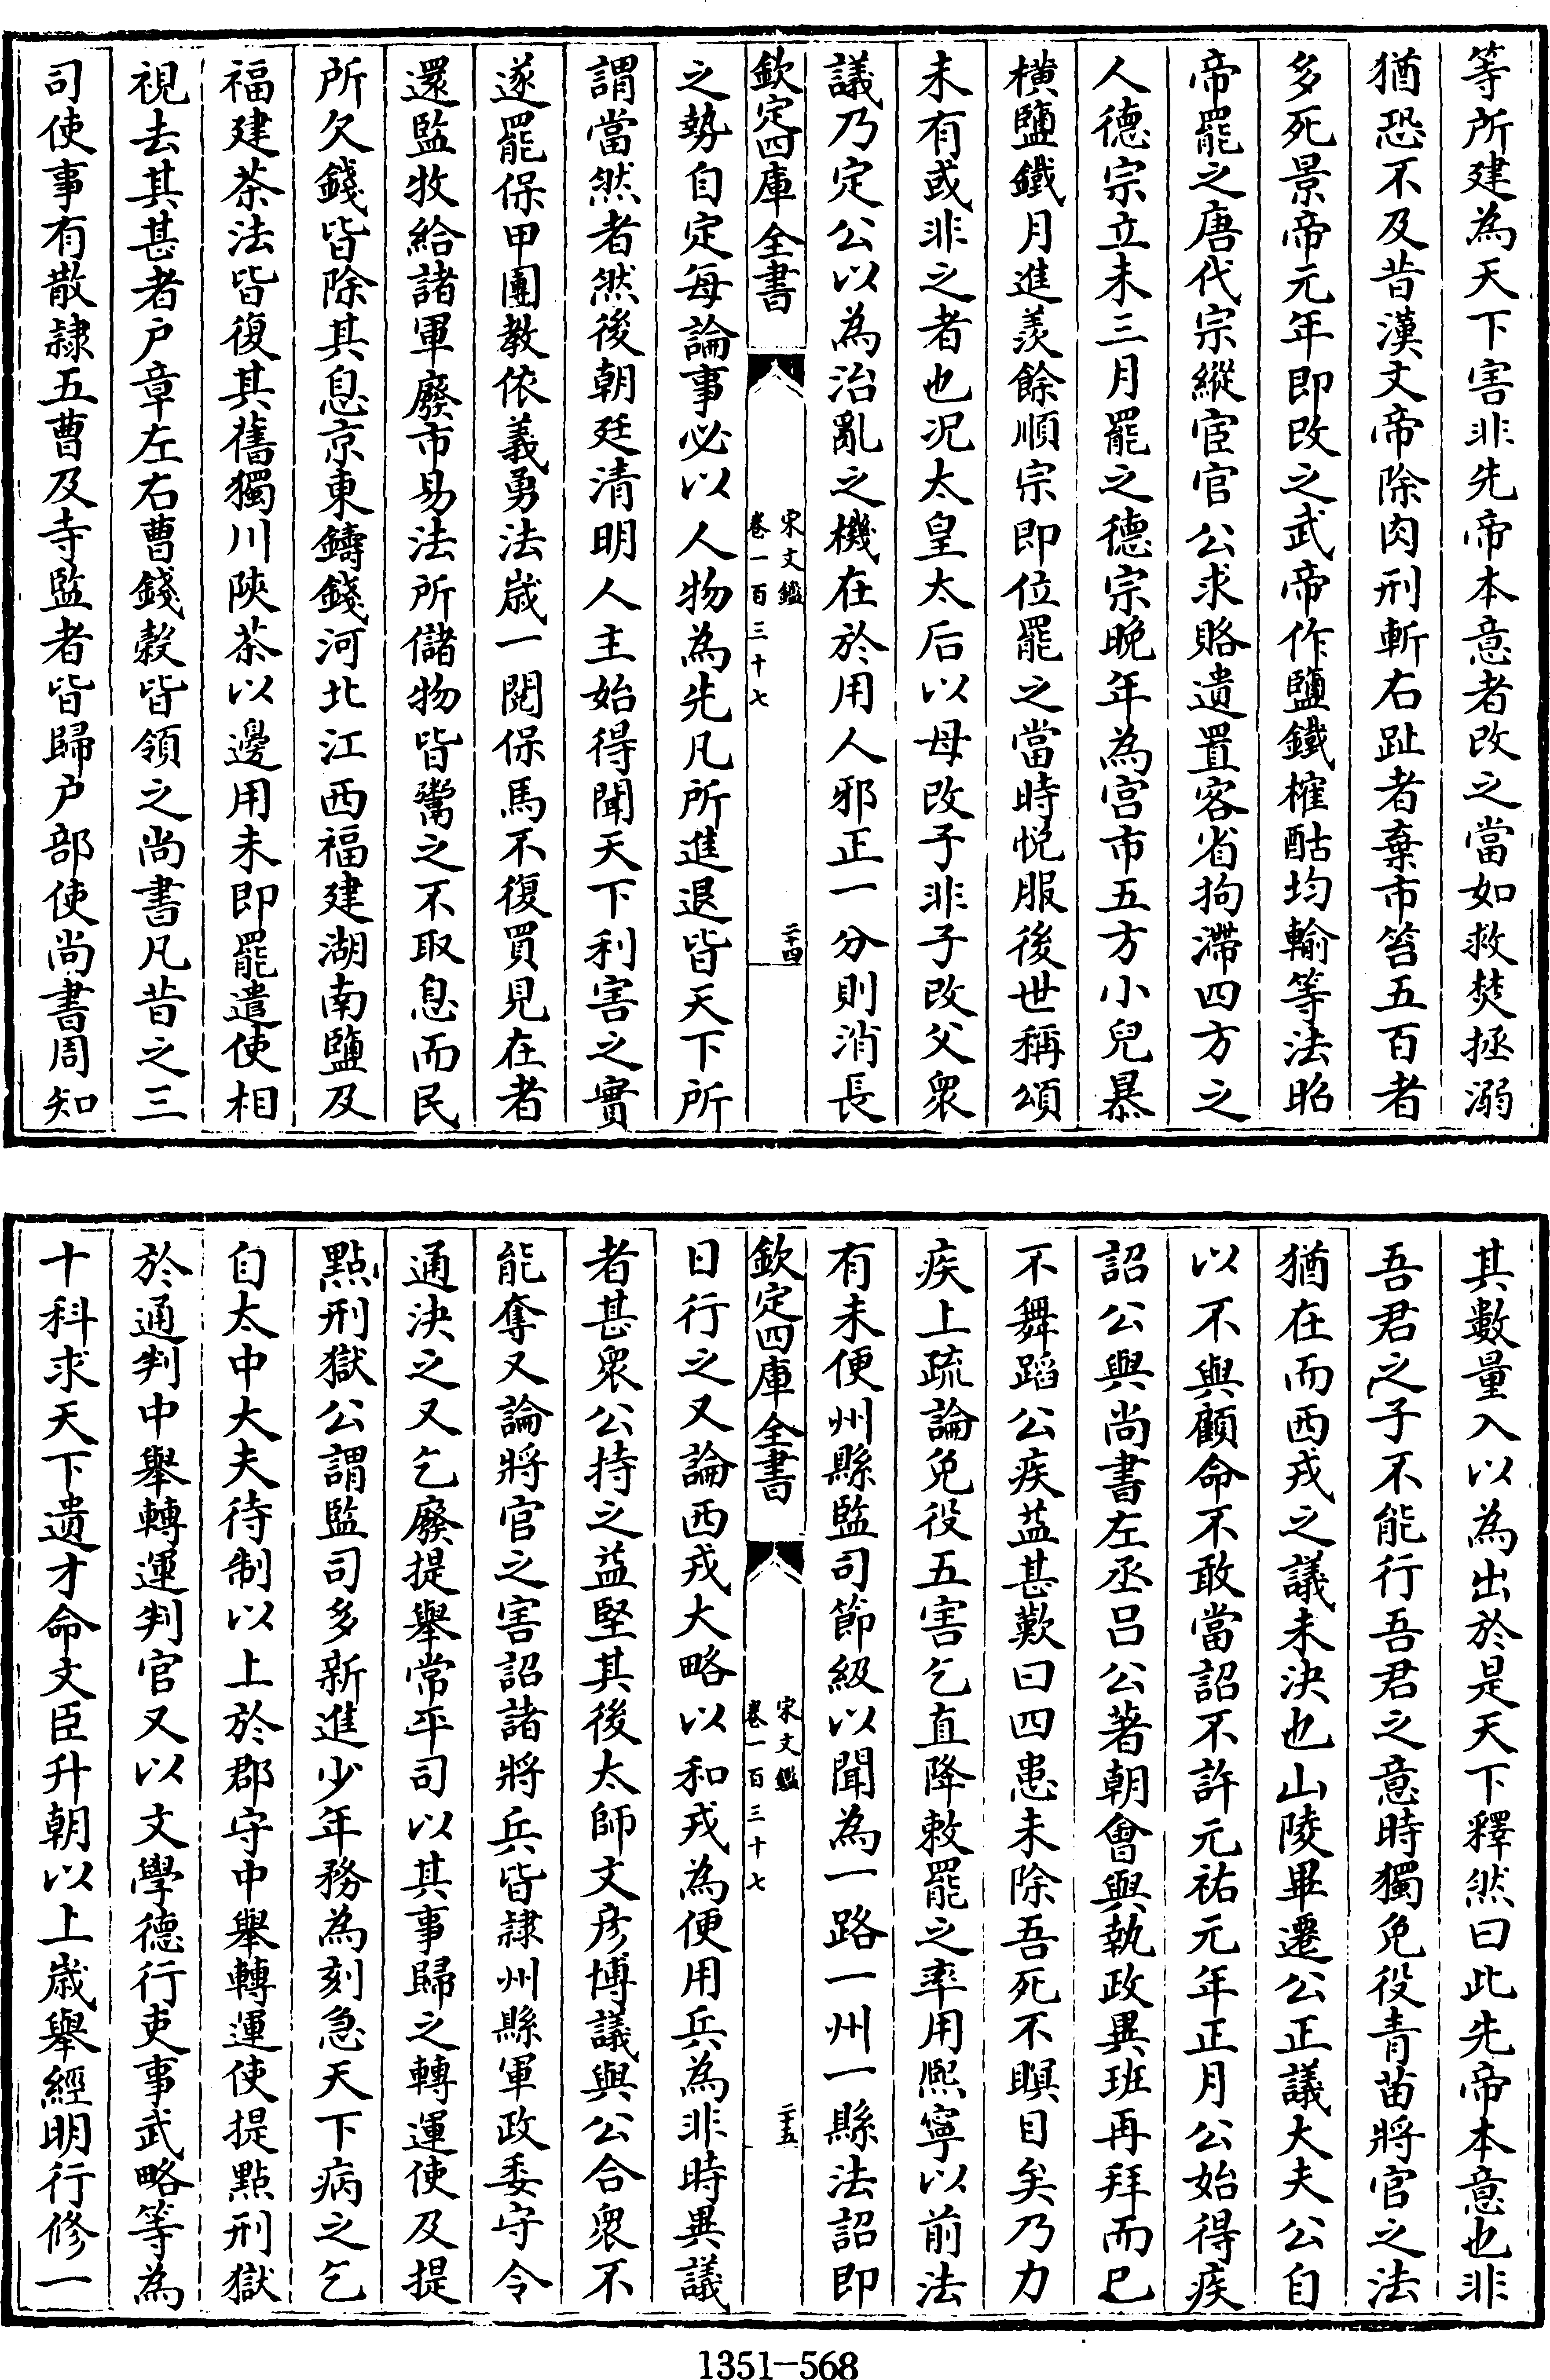 等所建為天下害非先帝本意者改之當如救焚拯溺
猶恐不及昔漢文帝除肉刑斬右趾者棄市笞五百者
多死景帝元年即改之武帝作鹽鐵榷酤均輸等法昭
帝罷之唐代宗縱宦官公求賂遺置客省拘滯四方之
人德宗立未三月罷之德宗晚年為宫市五方小兒暴
横鹽鐵月進羡餘順宗即位罷之當時悦服後世稱頌
未有或非之者也况太皇太后以母改子非子改父衆
議乃定公以為治亂之機在於用人邪正一分則消長
欽定四庫全書
宋文鑑
卷一百三十七
二十四
之勢自定每論事必以人物為先凡所進退皆天下所
謂當然者然後朝廷清明人主始得聞天下利害之實
遂罷保甲團教依義勇法歲一閱保馬不復買見在者
還監牧給諸軍廢市易法所儲物皆鬻之不取息而民
所欠錢皆除其息京東鑄錢河北江西福建湖南鹽及
福建茶法皆復其舊獨川陝茶以邊用未即罷遣使相
視去其甚者户章左右曹錢穀皆領之尚書凡昔之三
司使事有散隷五曹及寺監者皆歸户部使尚書周知
其數量入以為出於是天下釋然曰此先帝本意也非
吾君之子不能行吾君之意時獨免役青苗將官之法
猶在而西戎之議未決也山陵畢遷公正議大夫公自
以不與顧命不敢當詔不許元祐元年正月公始得疾
詔公與尚書左丞吕公著朝會與執政異班再拜而已
不舞蹈公疾益甚歎曰四患未除吾死不瞑目矣乃力
疾上疏論免役五害乞直降敕罷之率用熙寧以前法
有未便州縣監司節級以聞為一路一州一縣法詔即
欽定四庫全書
宋文鑑
卷一百三十七
二十五
日行之又論西戎大略以和戎為便用兵為非時異議
者甚衆公持之益堅其後太師文彦博議與公合衆不
能奪又論將官之害詔諸將兵皆隷州縣軍政委守令
通決之又乞廢提舉常平司以其事歸之轉運使及提
點刑獄公謂監司多新進少年務為刻急天下病之乞
自太中大夫待制以上於郡守中舉轉運使提點刑獄
於通判中舉轉運判官又以文學德行吏事武略等為
十科求天下遺才命文臣升朝以上歲舉經明行修一
1351—568